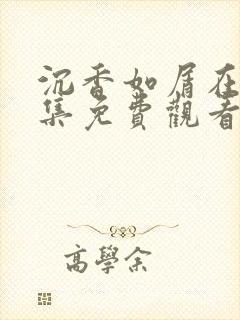 沉香如屑在
集免費觀看
高學余